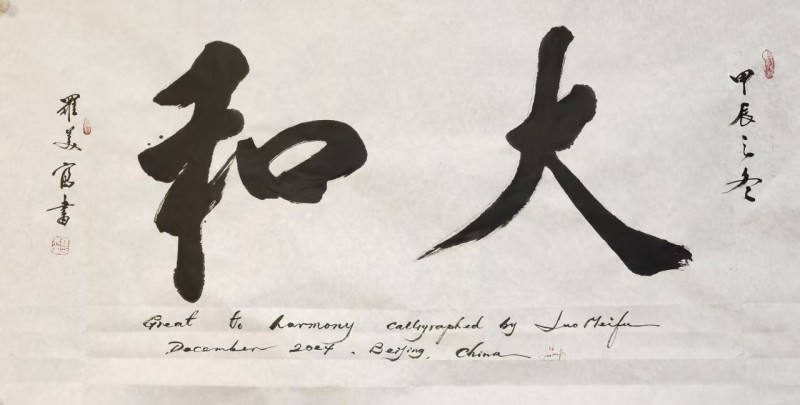 甲辰之冬
大和
羅美富書
Great to harmony calligraphed by Luo Meifu
December 2024. Beijing, China